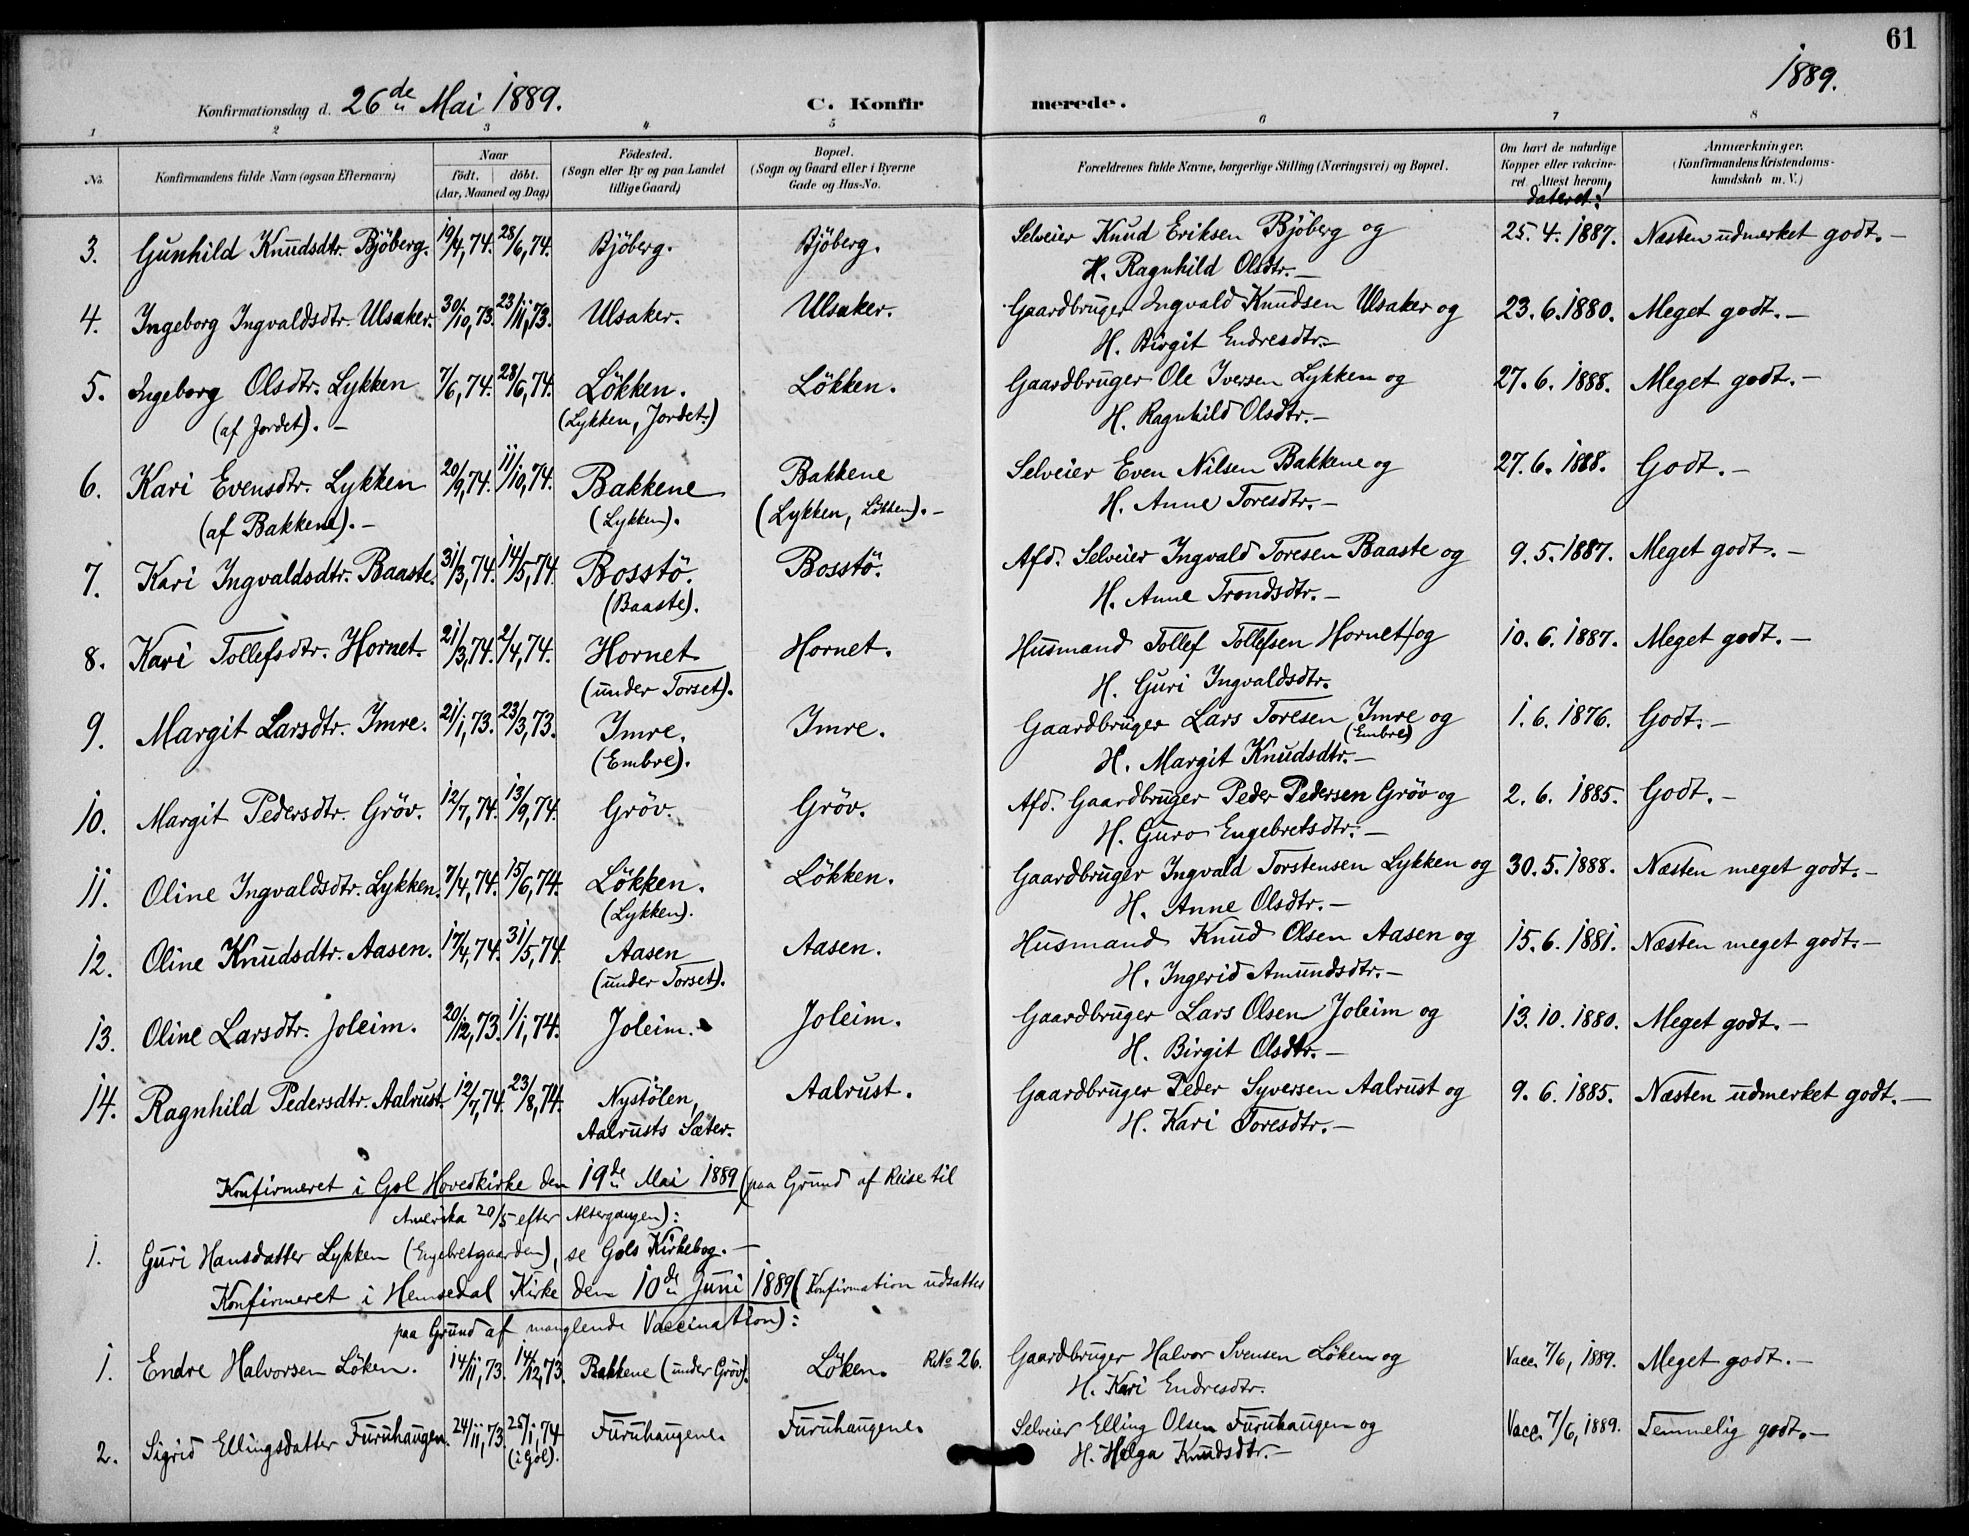 61
1889.
Konfirmationsdag d. 26de Mai 1889. C. Konfirmerede.
1 2 3 4 5 6 7 8
No. Konfirmandens fulde Navn (ogsaa Efternavn) Naar født. døbt. (Aar, Maaned og Dag) Fødested. (Sogn eller By og paa Landet tillige Gaard) Bopæl. (Sogn og Gaard eller i Byerne Gade og Hus-No. Forældrenes fulde Navne, borgerlige Stilling (Næringsvei) og Bopæl. Om havt de naturlige Kopper eller vaccineret. Attest herom, dateret: Anmærkninger. (Konfirmandens Kristendomskundskab m. V.)
3. Gunhild Knudsdtr. Bjöberg. 19/4, 74. 28/6, 74. Bjöberg. Bjöberg. Selveier Knud Eriksen Bjöberg og 25. 4. 1887. Næsten udmerket godt. –
H. Ragnhild Olsdtr. –
4. Ingeborg Ingvaldsdtr. Ulsaker. 30/10, 73. 23/11, 73. Ulsaker. Ulsaker. Gaardbruger Ingvald Knudsen Ulsaker og 23. 6. 1880. Meget godt. –
H. Birgit Endresdtr. –
5. Ingeborg Olsdtr. Lykken 7/6, 74. 28/6, 74. Lökken. Lökken. Gaardbruger Ole Iversen Lykken og 27. 6. 1888. Meget godt. –
(af Jordet). – (Lykken, Jordet.) H. Ragnhild Olsdtr. –
6. Kari Evensdtr. Lykken 20/9, 74. 11/10, 74. Bakkene Bakkene Selveier Even Nilsen Bakkene og 27. 6. 1888. Godt. –
(af Bakkene). – (Lykken). (Lykken, Lökken). – H. Anne Toresdtr. –
7. Kari Ingvaldsdtr. Baaste. 31/3, 74. 14/5, 74. Bosstö. Bosstö. Afd. Selveier Ingvald Toresen Baaste og 9. 5. 1887. Meget godt. –
(Baaste). H. Anne Trondsdtr. –
8. Kari Tollefsdtr. Hornet. 21/3, 74. 2/4, 74. Hornet Hornet. Husmand Tollef Tollefsen Hornet og 10. 6. 1887. Meget godt. –
(under Torset). H. Guri Ingvaldsdtr.
9. Margit Larsdtr. Imre. 21/1, 73. 23/3, 73. Imre. Imre. Gaardbruger Lars Toresen Imre (Embre) og 1. 6. 1876. Godt. –
(Embre). H. Margit Knudsdtr. –
10. Margit Pedersdtr. Gröv. 12/7, 74. 13/9, 74. Gröv. Gröv. Afd. Gaardbruger Peder Pedersen Gröv og 2. 6. 1885. Godt. –
H. Guro Engebretsdtr. –
11. Oline Ingvaldsdtr. Lykken. 7/4, 74. 15/6, 74. Lökken. Lökken. Gaardbruger Ingvald Torstensen Lykken og 30. 5. 1888. Næsten meget godt. –
(Lykken). H. Anne Olsdtr. –
12. Oline Knudsdtr. Aasen. 17/4, 74. 31/5, 74. Aasen Aasen. Husmand Knud Olsen Aasen og 15. 6. 1881. Næsten meget godt. –
(under Torset). H. Ingerid Amundsdtr. –
13. Oline Larsdtr. Joleim. 20/12, 73. 1/1, 74. Joleim. Joleim. Gaardbruger Lars Olsen Joleim og 13. 10. 1880. Meget godt. –
H. Birgit Olsdtr. –
14. Ragnhild Pedersdtr. Aalrust. 12/7, 74. 23/8, 74. Nystölen, Aalrust. Gaardbruger Peder Syversen Aalrust og 9. 6. 1885. Næsten udmerket godt. –
Aalrusts Sæter. H. Kari Toresdtr. –
Konfirmeret i Gol Hovedkirke den 19de Mai 1889 (paa Grund af Reise til
Amerika 20/5 efter Altergangen):
1. Guri Hansdatter Lykken (Engebretgaarden), se Gols Kirkebog. –
Konfirmeret i Hemsedal Kirke den 10de Juni 1889 (Konfirmation udsattes
paa Grund af manglende Vaccination):
1. Endre Halvorsen Löken. 14/11, 73. 14/12, 73. Bakkene (under Gröv). Löken. R.No 26. Gaardbruger Halvor Svensen Löken og Vacc. 7/6, 1889. Meget godt. –
H. Kari Endresdtr.
2. Sigrid Ellingsdatter Furuhaugen. 24/11, 73. 25/1, 74 Furuhaugene. Furuhaugene. Selveier Elling Olsen Furuhaugen og Vacc. 7/6, 1889. Temmelig godt. –
(i Gol). H. Helga Knudsdtr. –